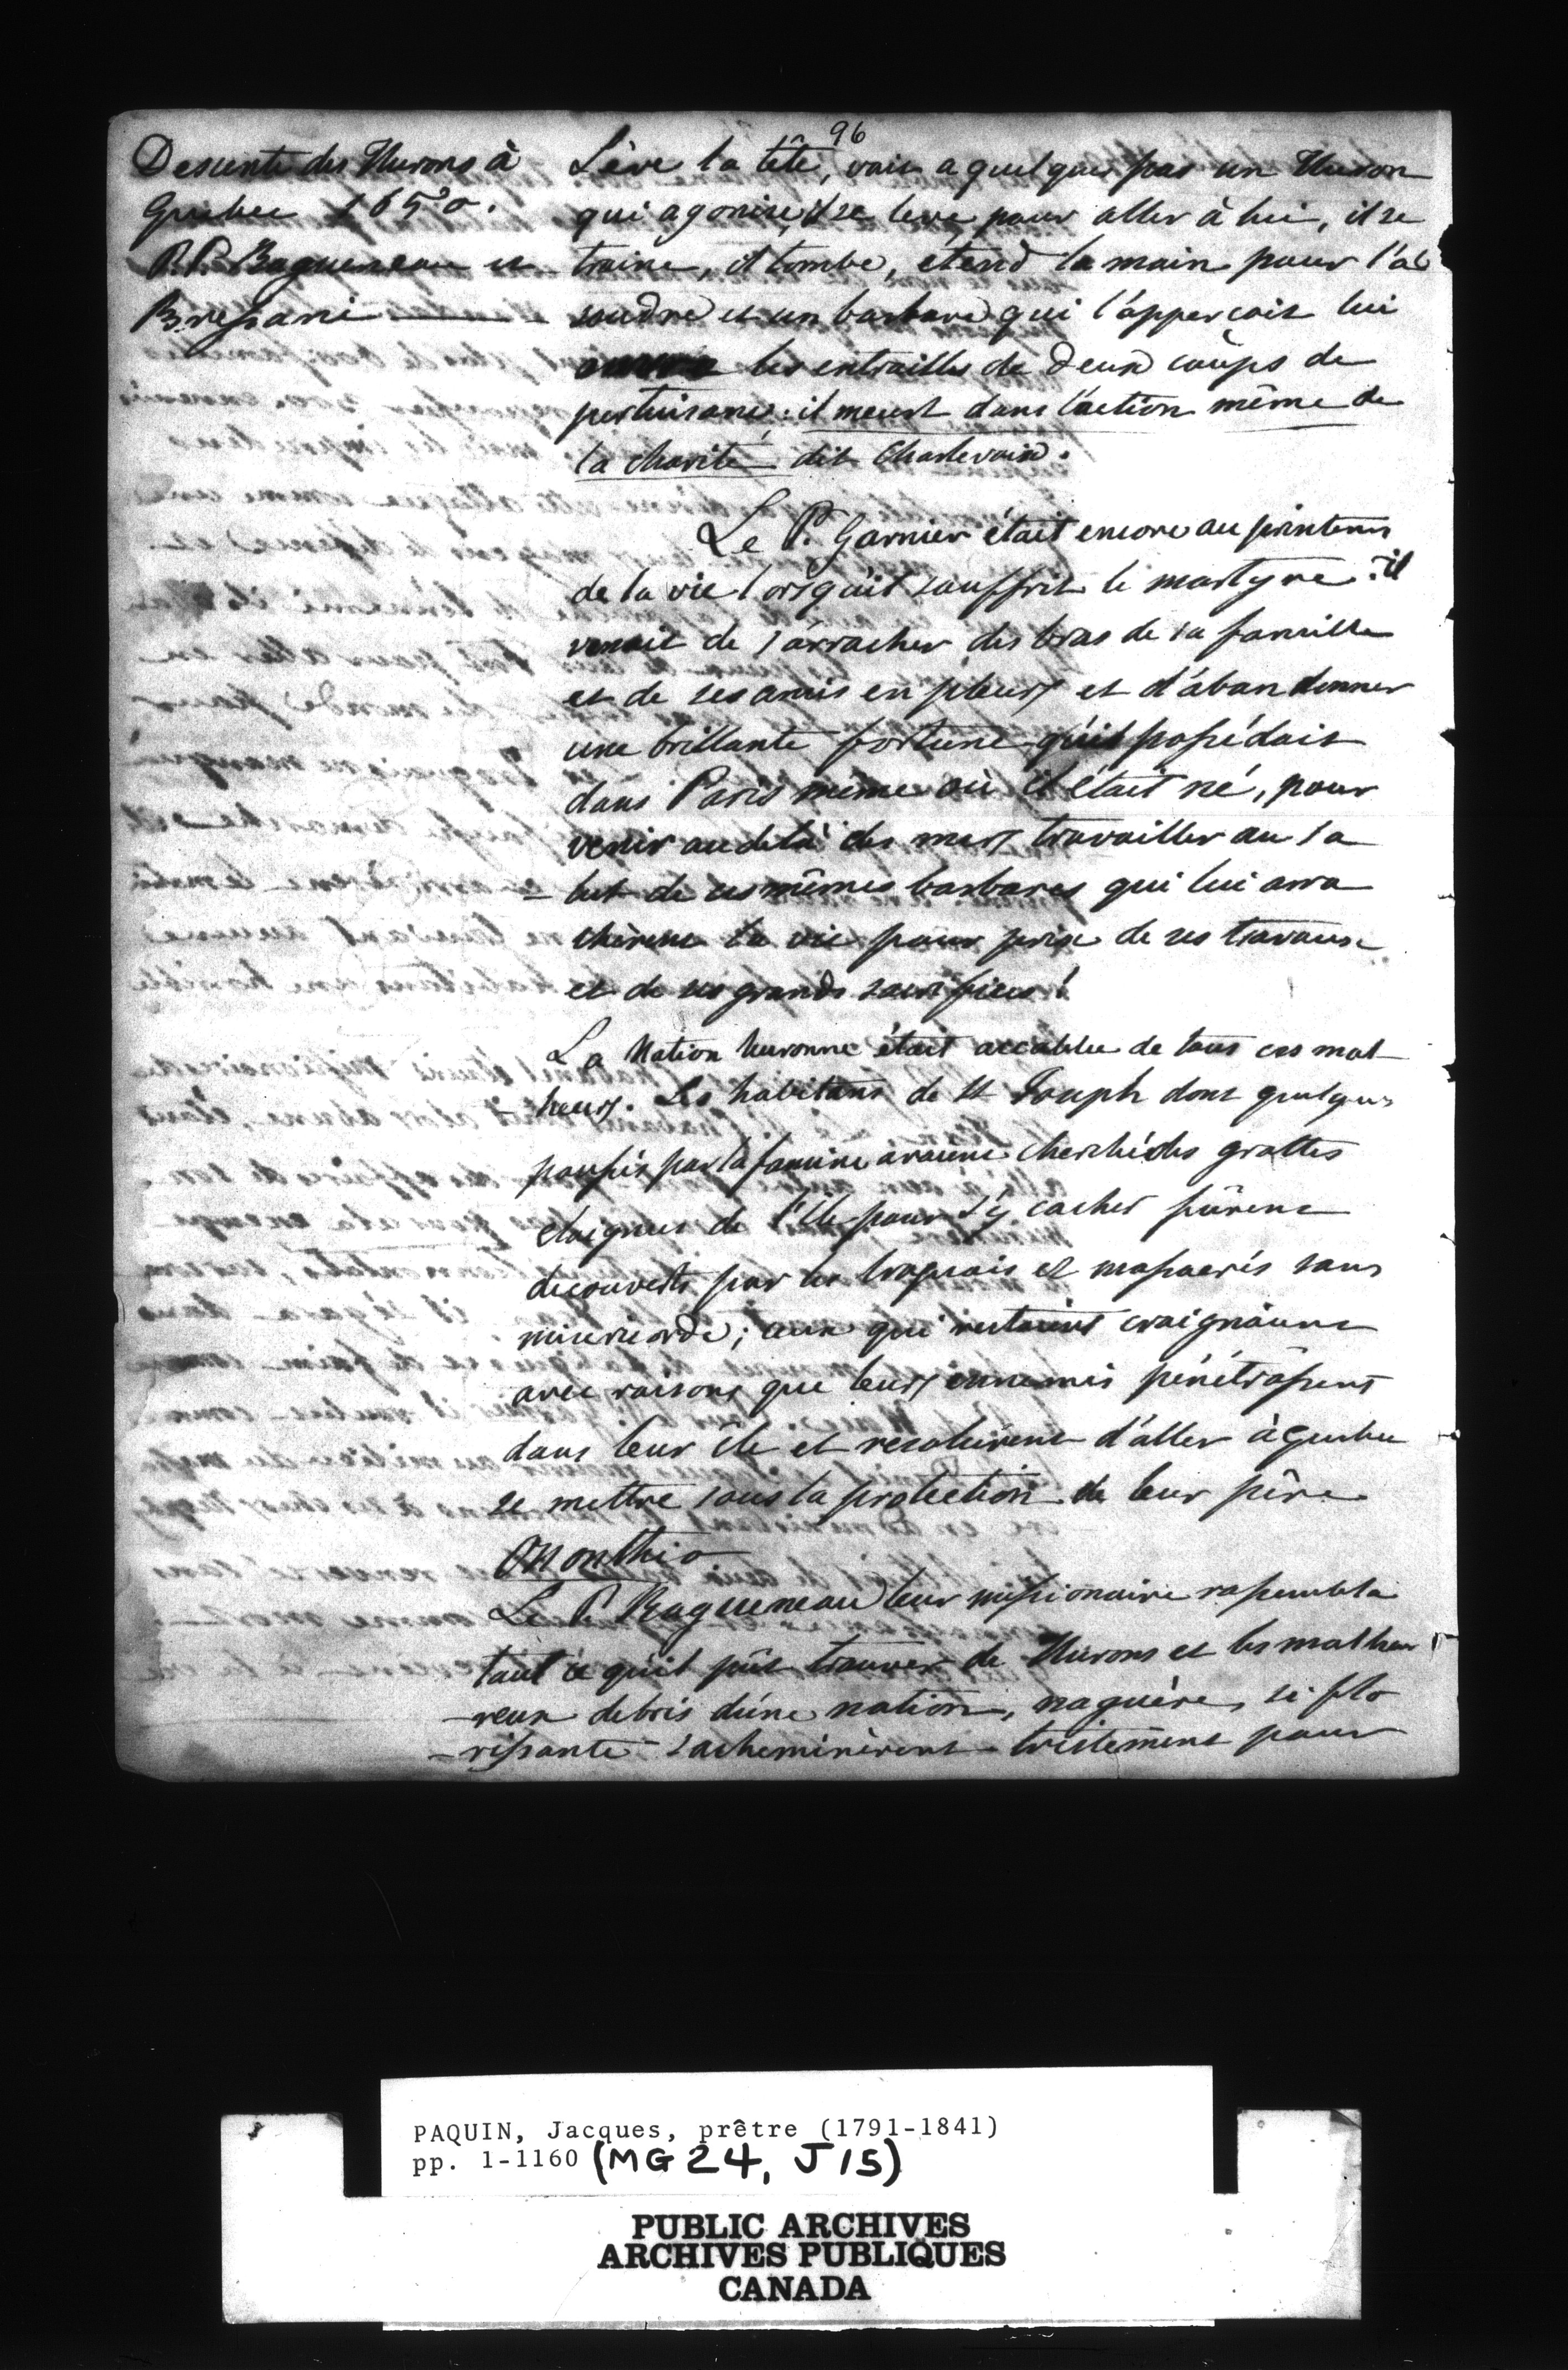 96
Descente des Hurons à
Quebec 1650.
P.P. Ragueneau et
Bressani
Lève la tête, voit a quelques pas un Huron
qui agonise, il se leve pour aller à lui, il se
traine, il tombe, étend la main pour l'ab
soudre et un barbare qui l'apperçoit lui
ouvre les entrailles de deux coups de
pertuisane: il meurt dans l'action même de
la charité, dit Charlevoix.
Le P. Garnier était encore au printems
de la vie lorsqu'il souffrit le martyre: il
venait de s'arracher des bras de sa famille
et de ses amis en pleurs et d'abandonner
une brillante fortune qu'il possédait
dans Paris même où il était né, pour
venir audela des mers travailler au sa
- lut de ces mêmes barbares qui lui arra
chèrent la vie pour prix de ses travaux
et de ses grands sacrifices!
La Nation huronne était accablée de tous ces mal
- heurs. Les habitans de St Joseph dont quelques
poussés par la famine avaient cherché des grottes
eloignées de l'île pour s'y cacher fûrent
decouverts par les Iroquois et massacrés sans
misericorde; ceux qui restaient craignaient
avec raisons que leurs ennemis pénétrassent
dans leur île et resolurent d'aller à Quebec
se mettre sous la protection de leur père
Ononthio
Le P. Ragueneau leur missionaire rassembla
tout ce qu'il pût trouver de Hurons et les malheu
- reux debris d'une nation, naguère, si flo
- rissante s'acheminèrent tristement pour
PAQUIN, Jacques, prêtre (1791-1841)
pp. 1-1160 (MG 24, J15)
PUBLIC ARCHIVES
ARCHIVES PUBLIQUES
CANADA